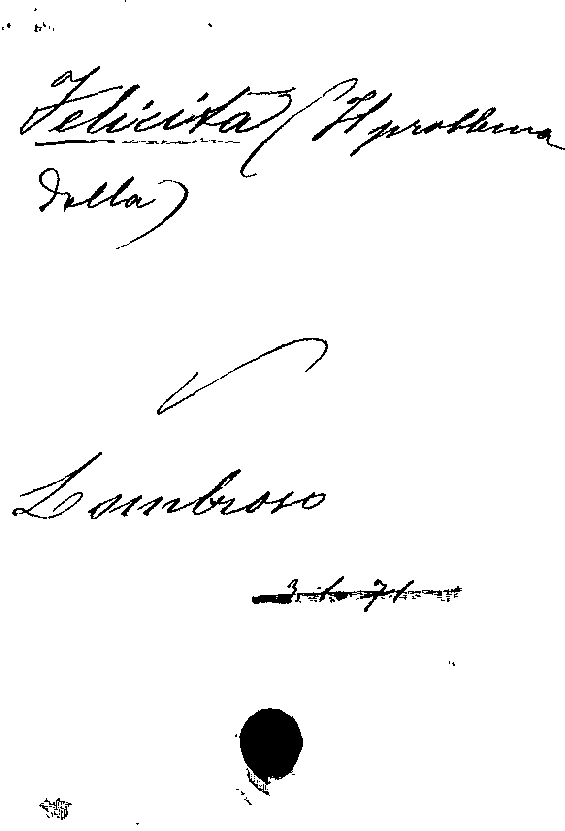 Felicità (Il problema
della)
Lombroso